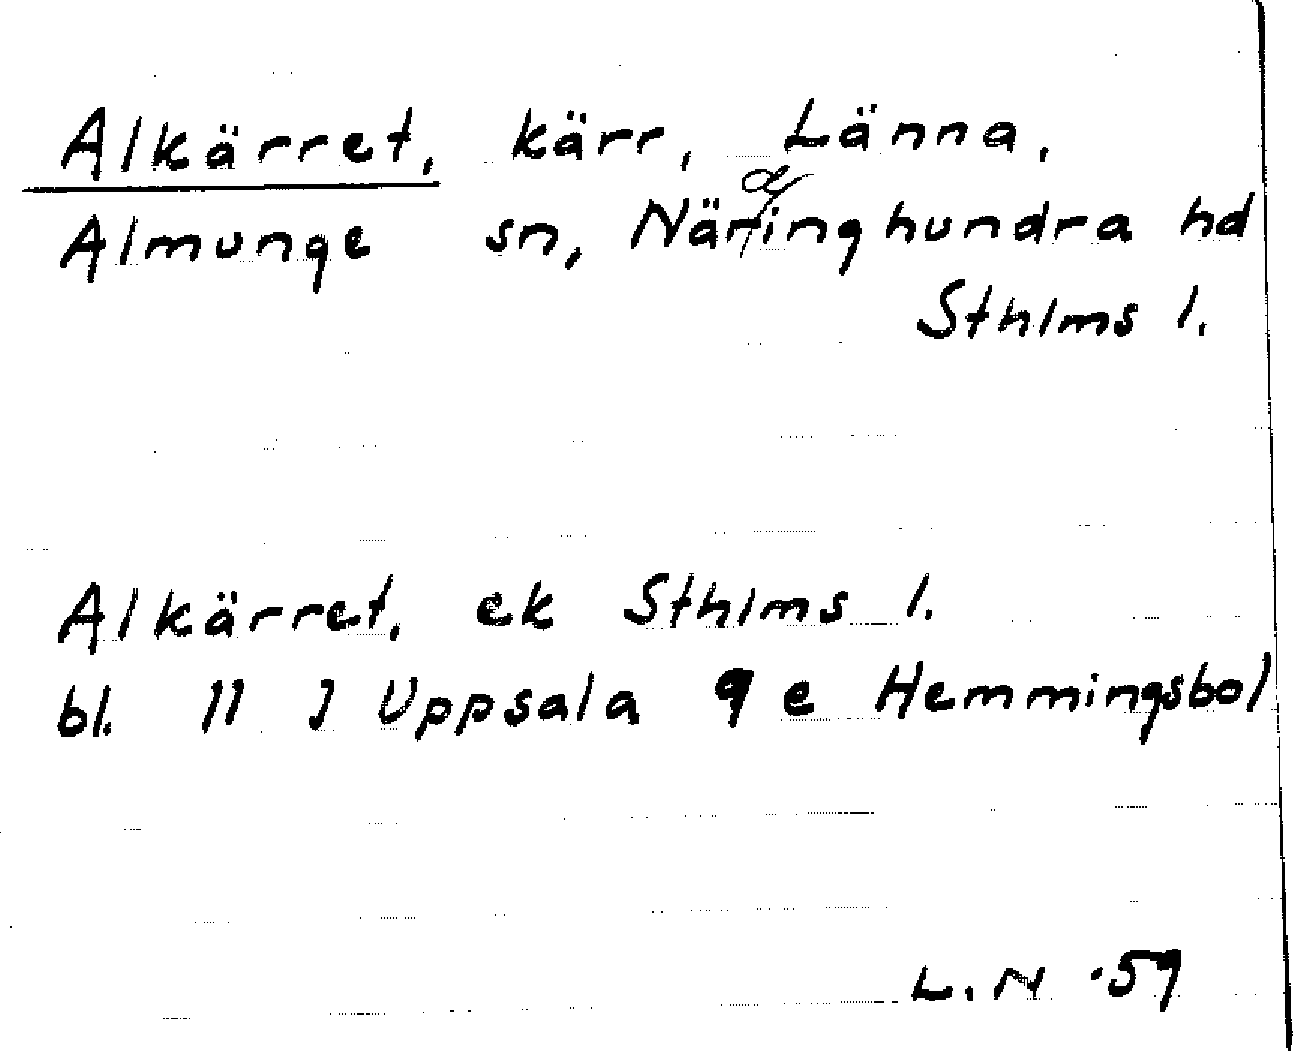 Alkärret, kärr, Länna,
Almunge sn, Närdinghundra hd
Sthlms l.
Alkärret, ek Sthlms l.
bl. 11 J Uppsala 9 e Hemmingsbol
L.N -59